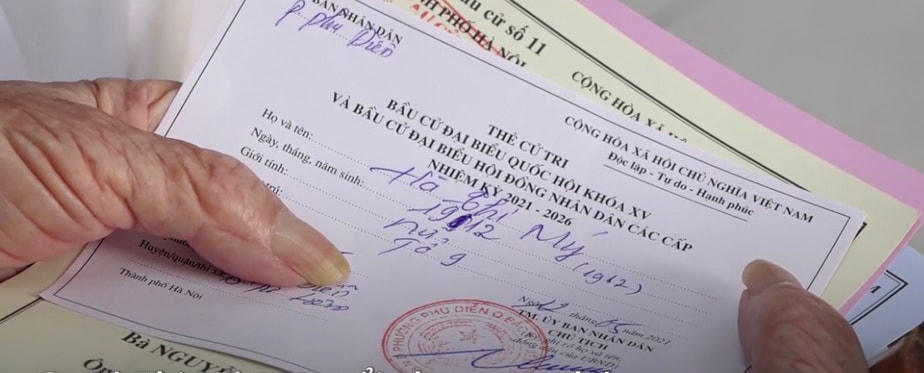 cứ số 11
PHỐ HÀ NỘI
CỘNG HÒA XÃ HỘI
BAN NHÂN DÂN
P. Phú Diễn
CỘNG HÒA XÃ HỘI CHỦ NGHĨA VIỆT NAM
Độc lập - Tự do - Hạnh phúc
THẺ CỬ TRI
BẦU CỬ ĐẠI BIỂU QUỐC HỘI KHÓA XV
VÀ BẦU CỬ ĐẠI BIỂU HỘI ĐỒNG NHÂN DÂN CÁC CẤP
NHIỆM KỲ 2021 - 2026
Họ và tên: Thị Mý
Ngày, tháng, năm sinh: 1912 (1912)
Giới tính: nữ
trú: Tổ 9
Huyện/quận/thị xã
Thành phố Hà Nội
Ngày tháng 05 năm 2021
TM. ỦY BAN NHÂN DÂN
CHỦ TỊCH
PHƯỜNG PHÚ DIỄN Q.BẮC
Bà NGUYỄ
Ông